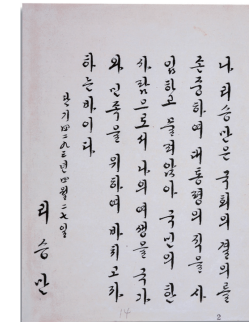 나 리승만은 국회의 결의를
존중하여 대통령의 직을 사
임하고 물러앉아 국민의 한
사람으로서 나의 여생을 국가
와 민족을 위하여 바치고자
하는바이다
단기四二九三년四월二七일
리승만
14
2